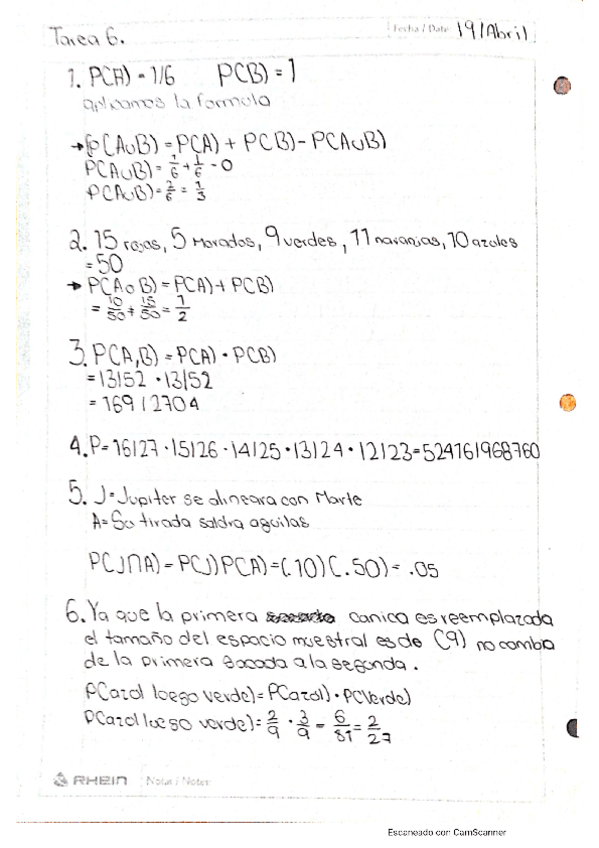 Tarea 6.
Fecha / Date 19/Abril
1. P(A) = 1/6 P(B) = 1
aplicamos la formula
→ P(A∪B) = P(A) + P(B) - P(A∪B)
P(A∪B) = 1/6 + 1/6 - 0
P(A∪B) = 2/6 = 1/3
2. 15 rojas, 5 Moradas, 9 verdes, 11 naranjas, 10 azules
= 50
→ P(A o B) = P(A) + P(B)
= 10/50 + 15/50 = 1/2
3. P(A,B) = P(A) · P(B)
= 13/52 · 13/52
= 169/2704
4. P = 16/27 · 15/26 · 14/25 · 13/24 · 12/23 = 524161968760
5. J = Jupiter se alineara con Marte
A = Su tirada saldra aguilas
P(J∩A) = P(J)P(A) = (.10)(.50) = .05
6. Ya que la primera canica es reemplazada
el tamaño del espacio muestral es de (9) no cambia
de la primera sacada a la segunda.
P(azul luego verde) = P(azul) · P(verde)
P(azul luego verde) = 2/9 · 3/9 = 6/81 = 2/27
RHEIN Notas / Notes
Escaneado con CamScanner